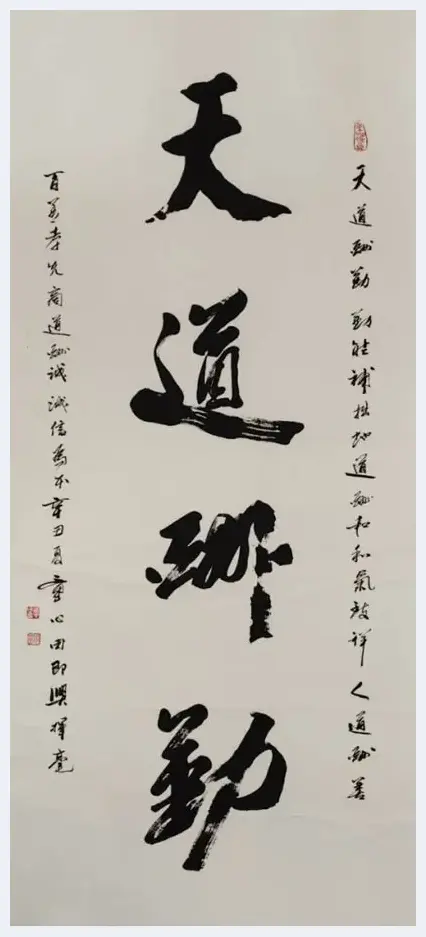 天道酬勤
天道酬勤勤能補拙地道酬和和氣致祥人道酬善
百善孝先商道酬誠誠信為本辛丑夏童心田即興揮毫